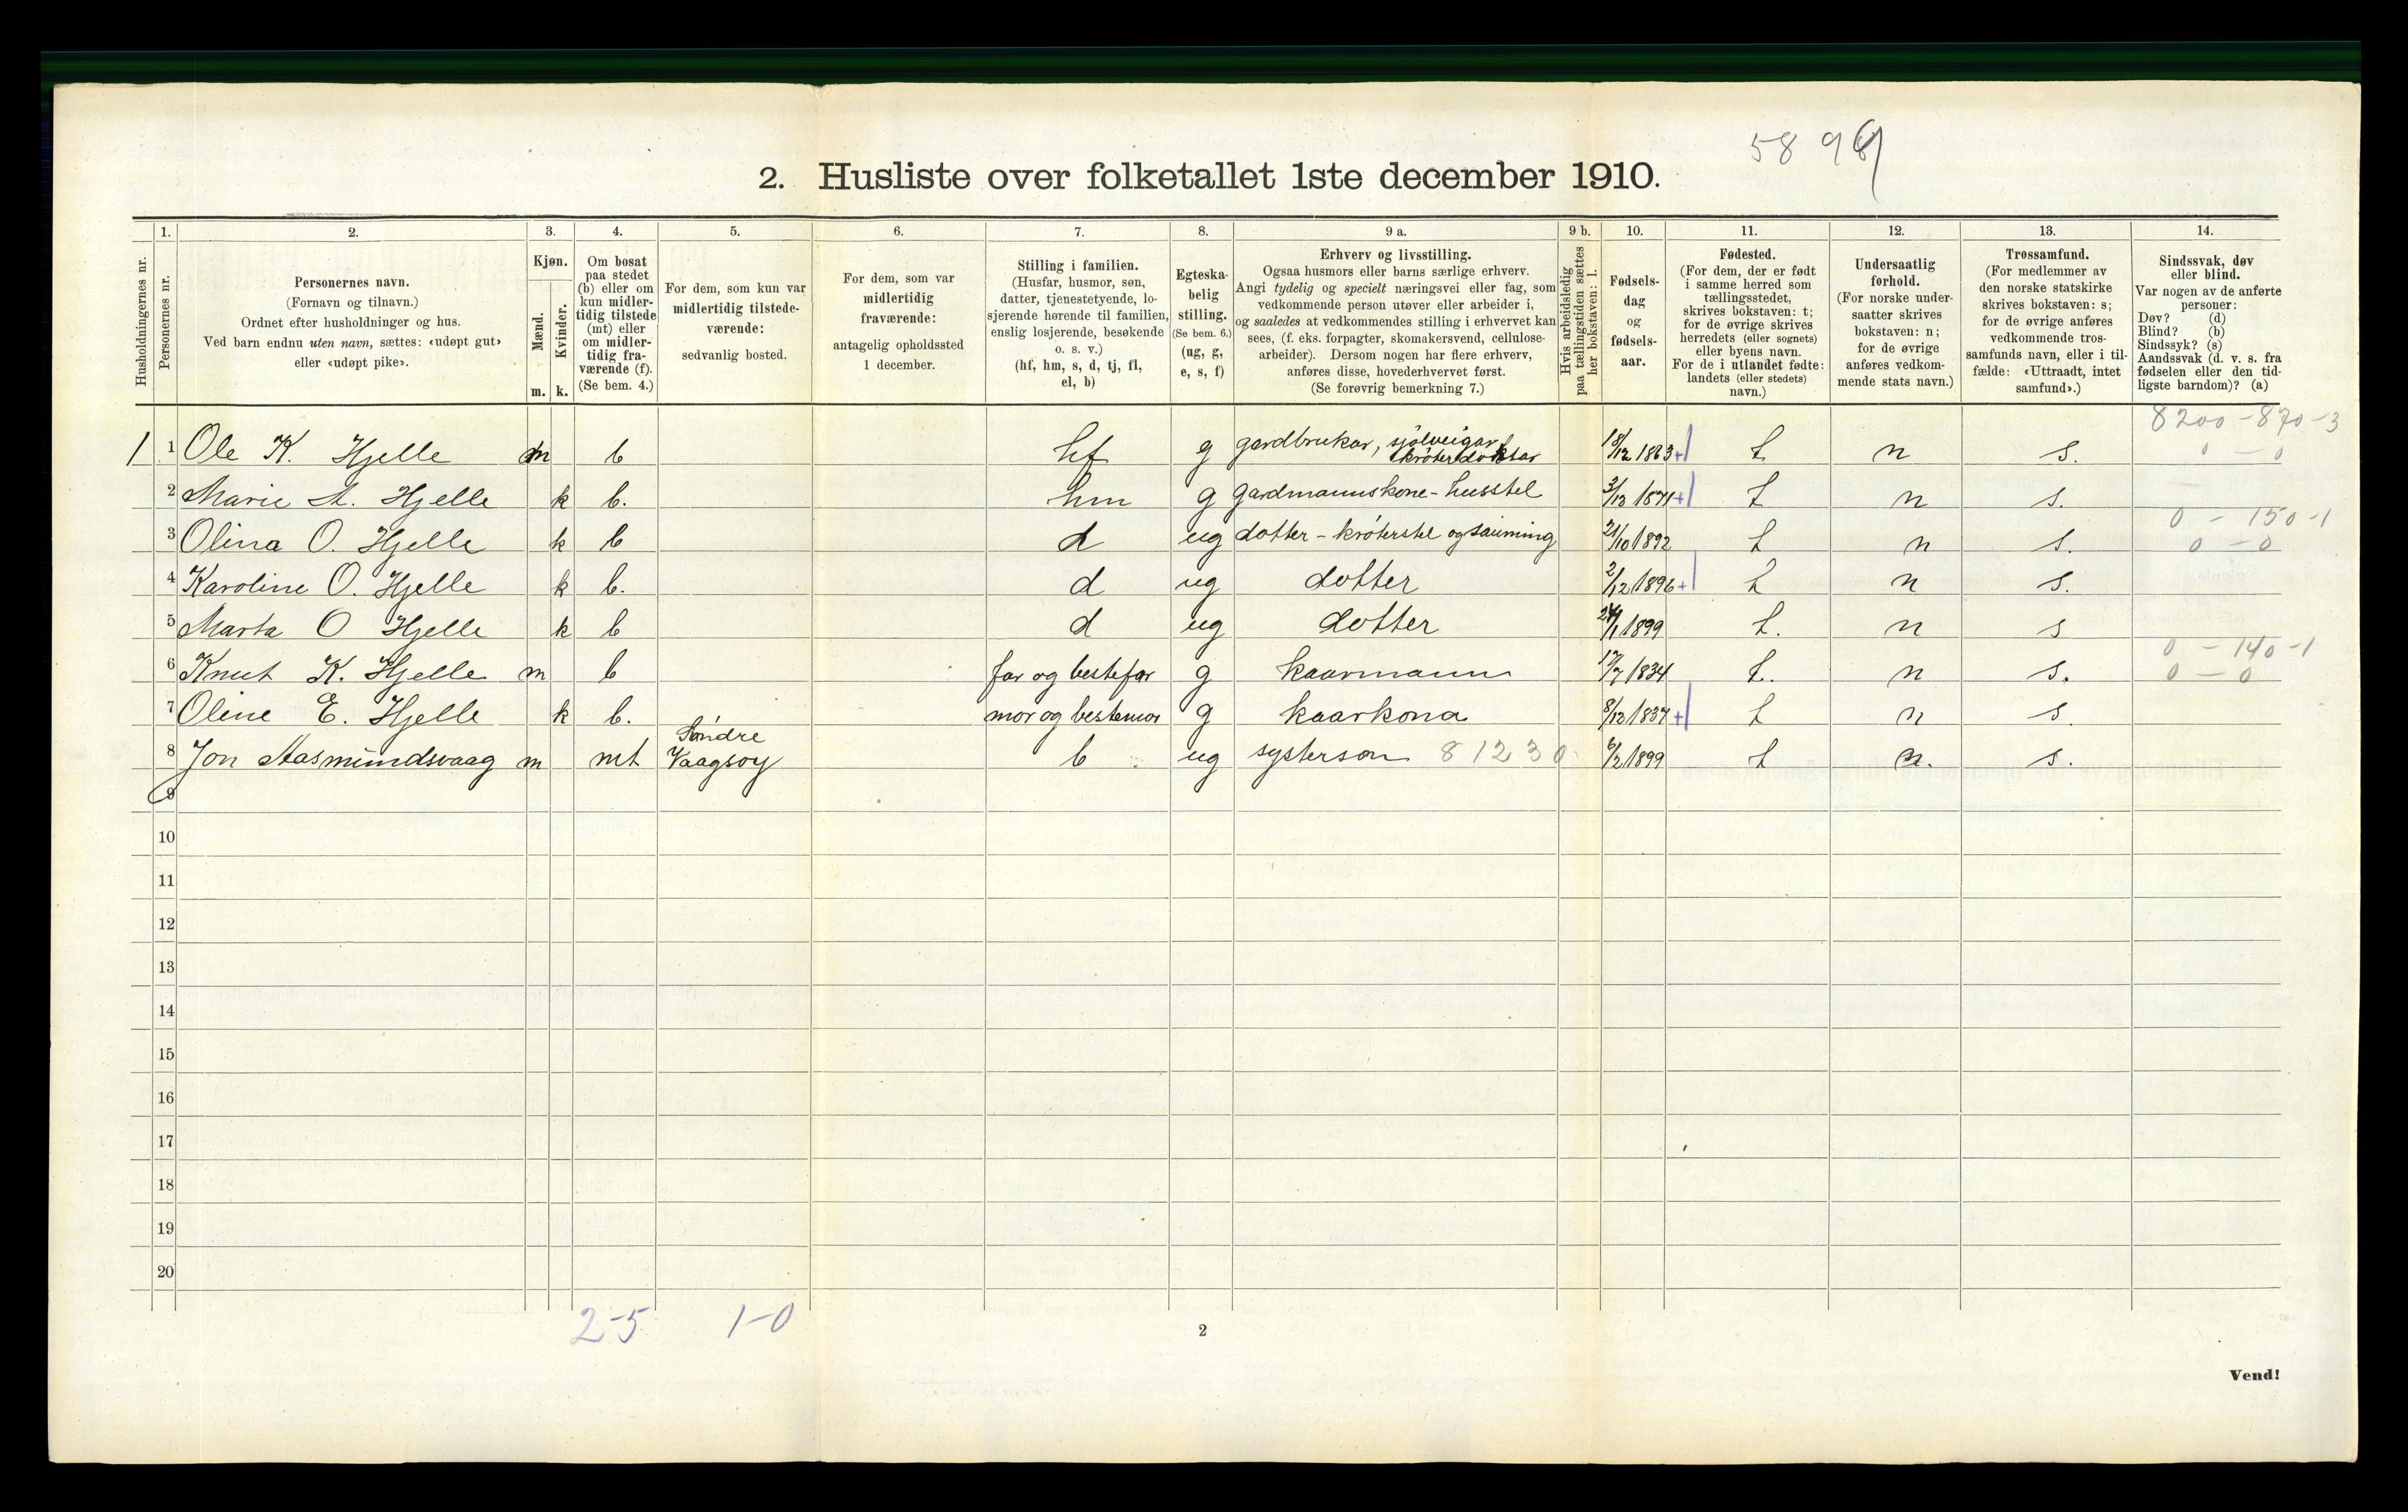 5898
2. Husliste over folketallet 1ste december 1910.
Husholdningernes nr.
1.
Personernes nr.
2.
Personernes navn.
(Fornavn og tilnavn.)
Ordnet efter husholdninger og hus.
Ved barn endnu uten navn, sættes: «udøpt gut»
eller «udøpt pike».
3.
Kjøn.
Mænd.
Kvinder.
m. k.
4.
Om bosat
paa stedet
(b) eller om
kun midler-
tidig tilstede
(mt) eller
om midler-
tidig fra-
værende (f).
(Se bem. 4.)
5.
For dem, som kun var
midlertidig tilstede-
værende:
sedvanlig bosted.
6.
For dem, som var
midlertidig
fraværende:
antagelig opholdssted
1 december.
7.
Stilling i familien.
(Husfar, husmor, søn,
datter, tjenestetyende, lo-
sjerende hørende til familien,
enslig losjerende, besøkende
o. s. v.)
(hf, hm, s, d, tj, fl,
el, b)
8.
Egteska-
belig
stilling.
(Se bem. 6.)
(ug, g,
e, s, f)
9 a.
Erhverv og livsstilling.
Ogsaa husmors eller barns særlige erhverv.
Angi tydelig og specielt næringsvei eller fag, som
vedkommende person utøver eller arbeider i,
og saaledes at vedkommendes stilling i erhvervet kan
sees, (f. eks. forpagter, skomakersvend, cellulose-
arbeider). Dersom nogen har flere erhverv,
anføres disse, hovederhvervet først.
(Se forøvrig bemerkning 7.)
9 b.
Hvis arbeidsledig
paa tællingstiden sættes
her bokstaven: l.
10.
Fødsels-
dag
og
fødsels-
aar.
11.
Fødested.
(For dem, der er født
i samme herred som
tællingsstedet,
skrives bokstaven: t;
for de øvrige skrives
herredets (eller sognets)
eller byens navn.
For de i utlandet fødte:
landets (eller stedets)
navn.)
12.
Undersaatlig
forhold.
(For norske under-
saatter skrives
bokstaven: n;
for de øvrige
anføres vedkom-
mende stats navn.)
13.
Trossamfund.
(For medlemmer av
den norske statskirke
skrives bokstaven: s;
for de øvrige anføres
vedkommende tros-
samfunds navn, eller i til-
fælde: «Uttraadt, intet
samfund».)
14.
Sindssvak, døv
eller blind.
Var nogen av de anførte
personer:
Døv? (d)
Blind? (b)
Sindssyk? (s)
Aandssvak (d. v. s. fra
fødselen eller den tid-
ligste barndom)? (a)
8200-870-3
1 1 Ole K. Hjelle m b hf g gardbrukar, sjølveigar krøterdoktar 18/12 1863 + t n s. 0-0
2 Marie A. Hjelle k b. hm g gardmannskone - husstel 3/12 1871 + t n s.
0 - 150-1
3 Olina O. Hjelle k b d ug dotter - krøterstel og sauming 21/10 1892 t n s. 0-0
4 Karoline O. Hjelle k b. d ug dotter 2/12 1896 + t n s.
5 Marta O Hjelle k b d ug dotter 24/1 1899 t. n s
0 - 140-1
6 Knut K. Hjelle m b far og bestefar g kaarmann 17/7 1834 t. n s. 0-0
7 Oline E. Hjelle k b. mor og bestemor g kaarkona 8/12 1837 + t n s.
8 Jon Aasmundsvaag m mt Søndre Vaagsøy b ug systerson 81230 6/2 1899 t n. s.
9
10
11
12
13
14
15
16
17
18
19
20
2-5 1-0
2
Vend!